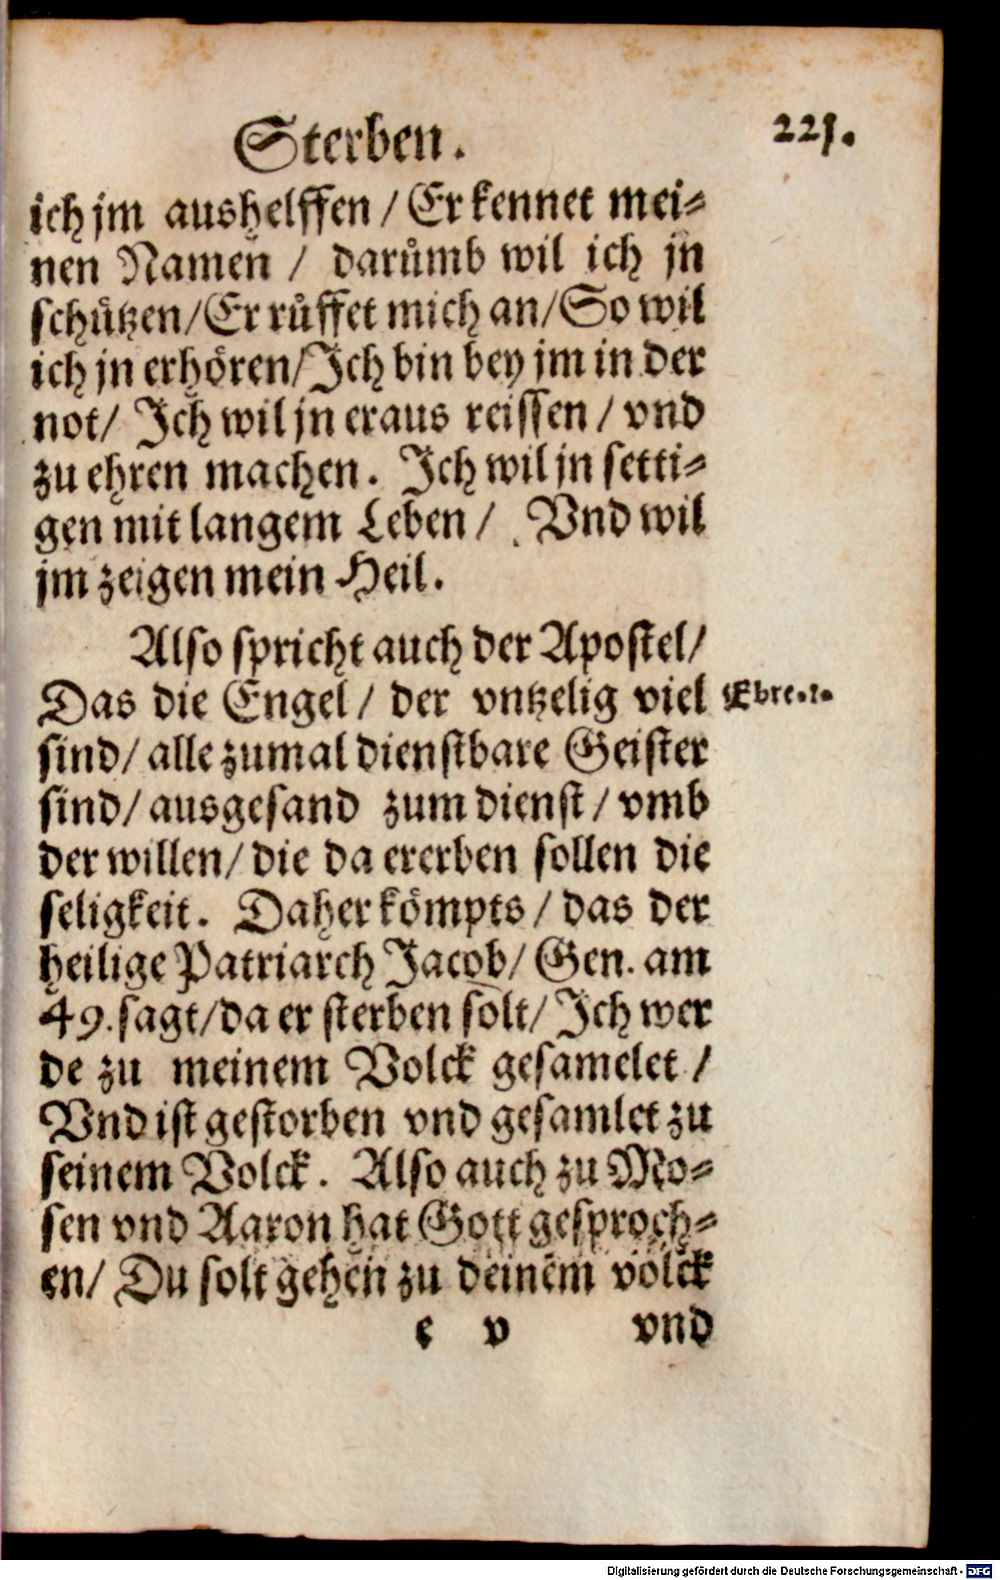 Sterben. 221.
ich jm aushelffen / Er kennet mei⸗
nen Namen / darůmb wil ich jn
schützen/Er rüffet mich an/So wil
ich jn erhören/Jch bin bey jm in der
not/ Jch wil jn eraus reissen / vnd
zu ehren machen. Jch wil jn setti⸗
gen mit langem Leben / Vnd wil
jm zeigen mein Heil.
Also spricht auch der Apostel/
Das die Engel / der vntzelig viel Ebre.1.
sind/ alle zumal dienstbare Geister
sind/ ausgesand zum dienst / vmb
der willen/ die da ererben sollen die
seligkeit. Daher kömpts / das der
heilige Patriarch Jacob/ Gen. am
49. sagt/da er sterben solt/ Jch wer
de zu meinem Volck gesamelet /
Vnd ist gestorben vnd gesamlet zu
seinem Volck. Also auch zu Mo⸗
sen vnd Aaron hat Gott gesproch⸗
en/ Du solt gehen zu deinem volck
e v vnd
Digitalisierung gefördert durch die Deutsche Forschungsgemeinschaft - DFG